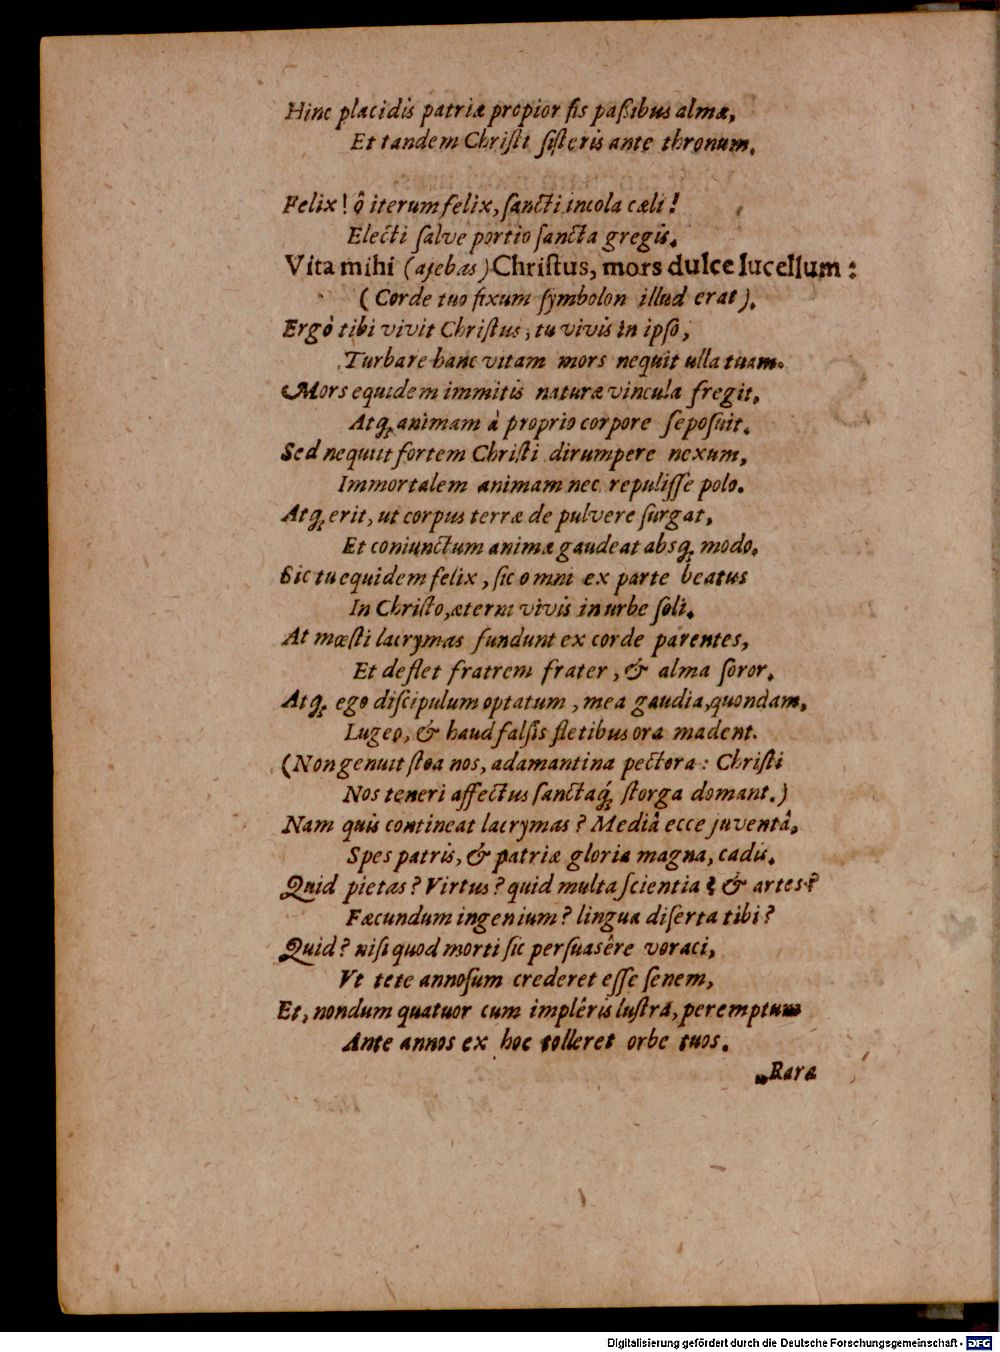 Hinc placidis patriæ propior ſis paßibus almæ,
Et tandem Chriſti ſiſteris ante thronum.
Felix! ô iterum felix, ſancti incola cæli!
Electi ſalve portio ſancta gregis.
Vita mihi (ajebas) Chriſtus, mors dulce lucellum:
(Corde tuo fixum ſymbolon illud erat).
Ergò tibi vivit Chriſtus, tu vivis in ipſo,
Turbare hanc vitam mors nequit ulla tuam.
Mors equidem immitis naturæ vincula fregit,
Atq́; animam à proprio corpore ſepoſuit.
Sed nequiit fortem Chriſti dirumpere nexum,
Immortalem animam nec repuliſſe polo.
Atq́; erit, ut corpus terræ de pulvere ſurgat,
Et coniunctum animæ gaudeat absq́; modo.
Sic tu equidem felix, ſic omni ex parte beatus
In Chriſto, æterni vivis in urbe ſoli.
At mœſti lacrymas fundunt ex corde parentes,
Et deflet fratrem frater, & alma ſoror.
Atq́; ego diſcipulum optatum, mea gaudia, quondam,
Lugeo, & haud falſis fletibus ora madent.
(Non genuit ſtoa nos, adamantina pectora: Chriſti
Nos teneri affectus ſanctaq́; ſtorga domant.)
Nam quis contineat lacrymas? Mediâ ecce juventâ,
Spes patris, & patriæ gloria magna, cadis.
Quid pietas? Virtus? quid multa ſcientia? & artes?
Fæcundum ingenium? lingua diſerta tibi?
Quid? niſi quod morti ſic perſuasêre voraci,
Vt tete annoſum crederet eſſe ſenem,
Et, nondum quatuor cum implêris luſtra, peremptum
Ante annos ex hoc tolleret orbe tuos.
„Rara
Digitalisierung gefördert durch die Deutsche Forschungsgemeinschaft - DFG